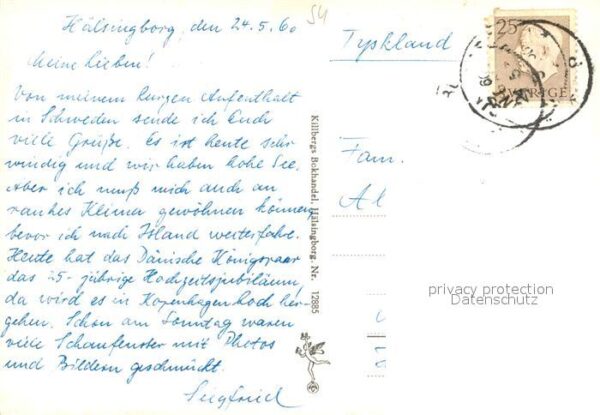 Hälsingborg, den 24.5.60
Meine Lieben!
Von meinem kurzen Aufenthalt
in Schweden sende ich Euch
viele Grüße. Es ist heute sehr
windig und wir haben hohe See.
Aber ich muß mich auch an
rauhes Klima gewöhnen können
bevor ich nach Island weiterfahre.
Heute hat das Dänische Königspaar
das 25-jährige Hochzeitsjubiläum,
da wird es in Kopenhagen hoch her-
gehen. Schon am Sonntag waren
viele Schaufenster mit Photos
und Bildern geschmückt.
Siegfried
54
Killbergs Bokhandel, Hälsingborg. Nr. 12885
Tyskland
25
SVERIGE
Fam.
Al
privacy protection
Datenschutz